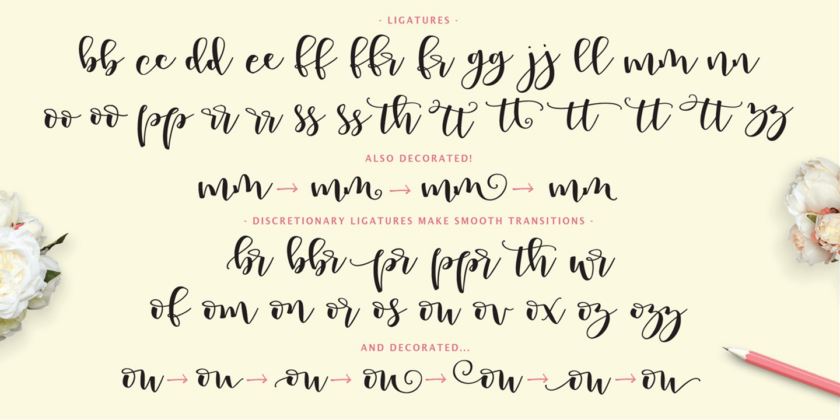 - LIGATURES -
bb cc dd ee ff ffr fr gg jj ll mm nn
oo oo pp rr rr ss ss th tt tt tt tt tt zz
ALSO DECORATED!
mm → mm → mm → mm
- DISCRETIONARY LIGATURES MAKE SMOOTH TRANSITIONS -
br bbr pr ppr th wr
of om on or os ou ov ox oz ozy
AND DECORATED...
ou → ou → ou → ou → ou → ou → ou